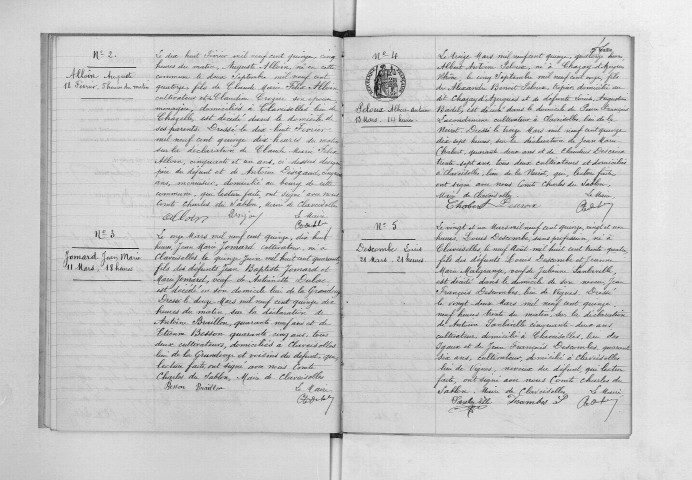 N° 2.
Alloin August
18 Février, 5 heures du matin
Le dix huit Février mil neuf cent quinze, cinq
heures du matin, Auguste Alloin, né en cette
commune le douze Septembre mil neuf cent
quatorze, fils de Claude Marie Félix Alloin
cultivateur et de Claudine son épouse
ménagère, domiciliés à Claveisolles lieu de
est décédé dans le domicile de
ses parents. Dressé le dix huit Février
mil neuf cent quinze dix heures du matin
sur la déclaration de Claude Marie Félix
Alloin, cinquante et un ans, ci dessus désigné
père du défunt et de Antoine
ans, menuisier, domicilié au bourg de cette
commune, qui lecture faite ont signé avec nous
Comte Charles du Sablon, Maire de Claveisolles
Le Maire
N° 3
Jomard Jean Marie
11 Mars, 18 heures
Le onze Mars mil neuf cent quinze, dix huit
heures, Jean Marie Jomard cultivateur, né à
Claveisolles le quinze Juin mil huit cent quarante
fils des défunts Jean Baptiste Jomard et
Marie Jomard, veuf de Antoinette Dulac
est décédé en son domicile lieu de la
Dressé le douze Mars mil neuf cent quinze dix
heures du matin sur la déclaration de
Antoine Braillon, quarante neuf ans et de
Etienne Besson quarante cinq ans, tous
deux cultivateurs, domiciliés à Claveisolles
lieu de la et voisins du défunt, qui
lecture faite, ont signé avec nous Comte
Charles du Sablon, Maire de Claveisolles
Besson Braillon Le Maire
N° 4
Albert Antoine
13 Mars, 14 heures
Le treize Mars mil neuf cent quinze, quatorze heures
Albert Antoine né à
Rhône, le cinq Septembre mil neuf cent onze, fils
de Alexandre Benoit domicilié au
dit et de défunte Louise Augustine
est décédé dans le domicile de Pierre François
cultivateur à Claveisolles lieu de
la Dressé le treize Mars mil neuf cent quinze
dix sept heures, sur la déclaration de Jean Marie
Chabert, quarante deux ans et de Claudius Descroix
trente sept ans, tous deux cultivateurs et domiciliés
à Claveisolles, lieu de la qui, lecture faite
ont signé avec nous Comte Charles du Sablon,
Maire de Claveisolles Le Maire
Chabert Descroix
N° 5
Descombe Louis
21 Mars, 21 heures
Le vingt et un Mars mil neuf cent quinze, vingt et une
heures, Louis Descombe sans profession, né à
Claveisolles le neuf Août mil huit cent trente quatre
fils des défunts Louis Descombe et Jeanne
Marie Malgrange, veuf de Julienne
est décédé dans le domicile de son neveu Jean
François Descombes, lieu de Vignes. Dressé
le vingt deux Mars mil neuf cent quinze
neuf heures du matin, sur la déclaration
de Antoine cinquante deux ans
cultivateur, domicilié à Claveisolles, lieu des
et de Jean François Descombes, quarante
six ans, cultivateur, domicilié à Claveisolles
lieu de Vignes, neveu du défunt, qui lecture
faite, ont signé avec nous Comte Charles du
Sablon, Maire de Claveisolles Le Maire
Descombes